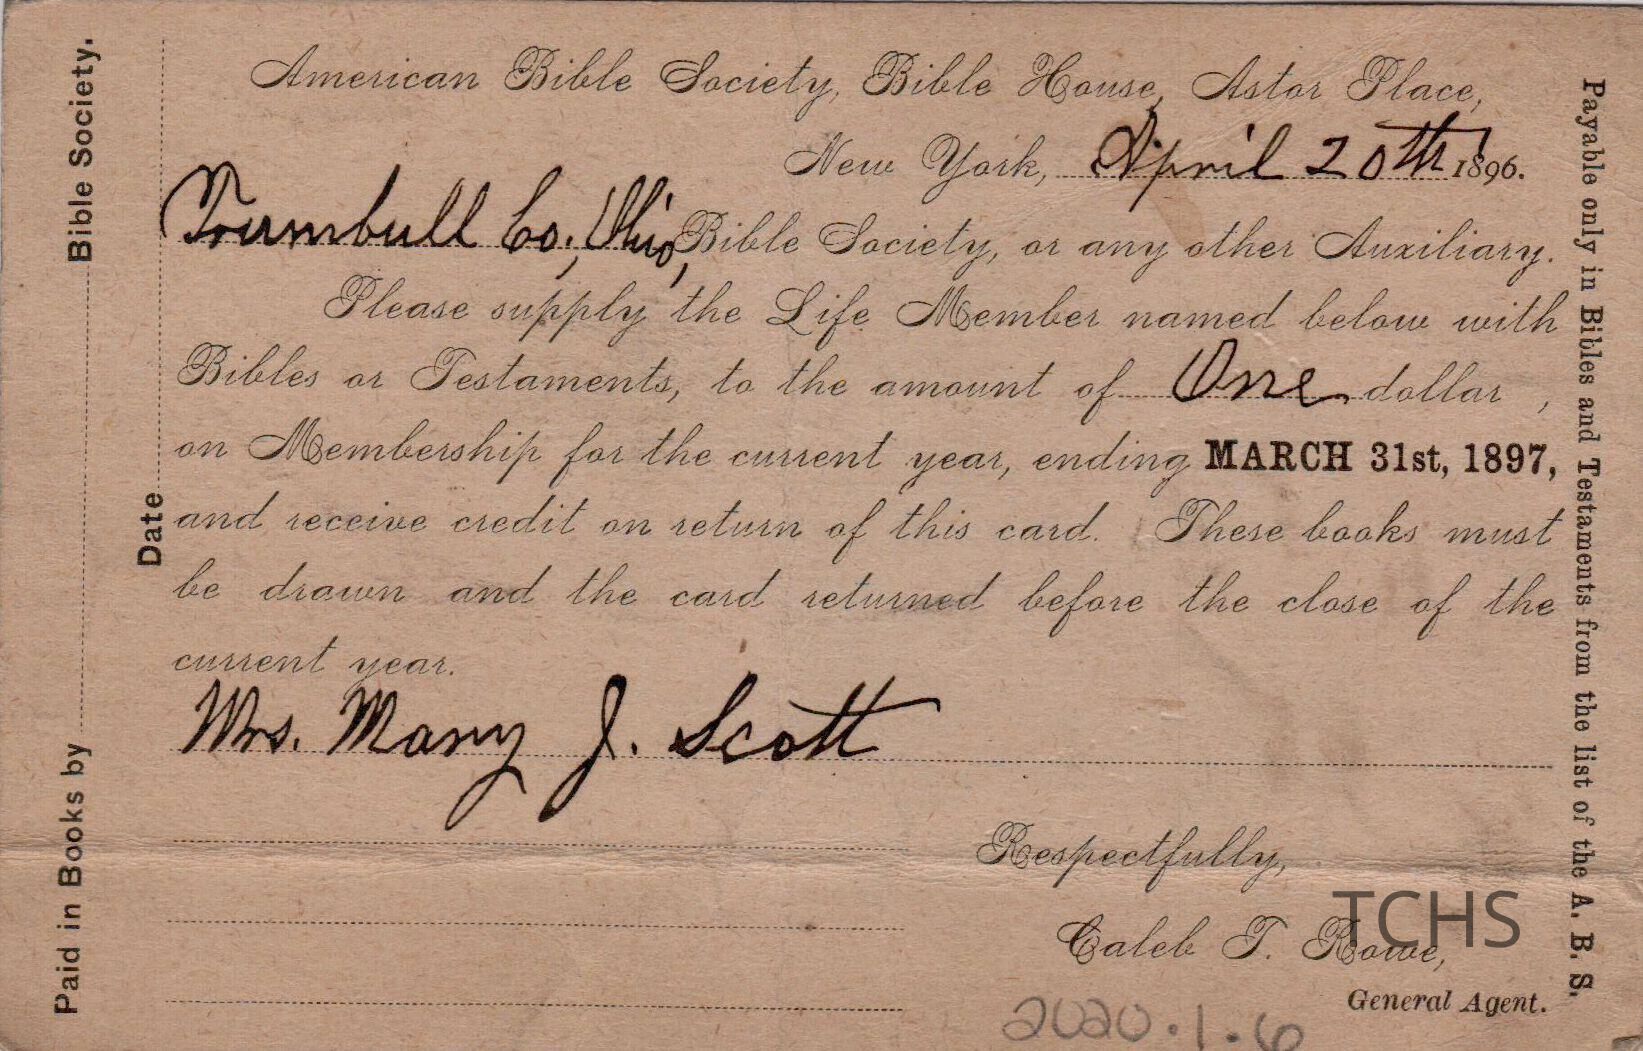 American Bible Society, Bible House, Astor Place,
New York, April 20th 1896.
Trumbull Co., Ohio, Bible Society, or any other Auxiliary.
Please supply the Life Member named below with
Bibles or Testaments, to the amount of One dollar ,
on Membership for the current year, ending MARCH 31st, 1897,
and receive credit on return of this card. These books must
be drawn and the card returned before the close of the
current year.
Mrs. Mary J. Scott
Respectfully,
Caleb T. Rowe,
General Agent.
TCHS
2020.1.6
Paid in Books by Bible Society.
Date
Payable only in Bibles and Testaments from the list of the A. B. S.